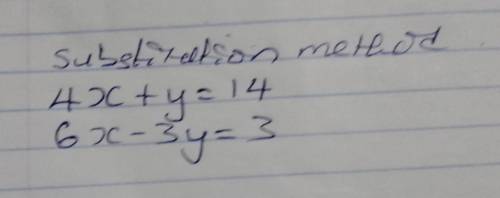 Substitution method
4x + y = 14
6x - 3y = 3